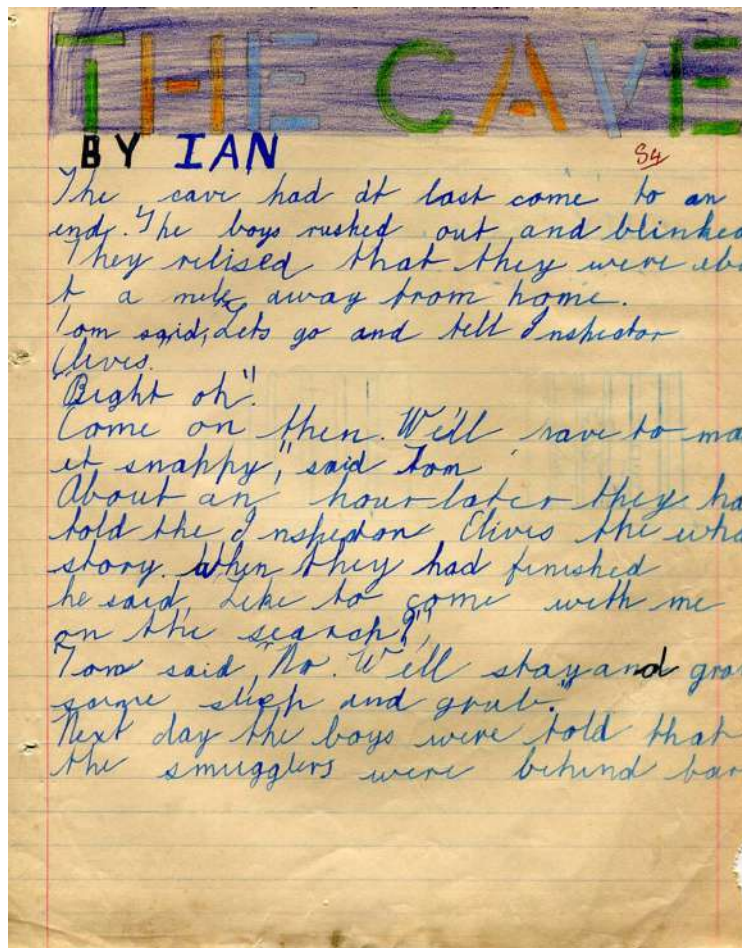 THE CAVE
BY IAN
S4
The cave had at last come to an
end. The boys rushed out and blinked
They relised that they were abo
t a mile away from home.
Tom said, "Lets go and tell Inspector
Clives.
"Right oh".
Come on then. We'll have to ma
it snappy," said Tom
About an hour later they ha
told the Inspector Clives the who
story. When they had finished
he said, Like to come with me
on the search?",
Tom said, "No. We'll stay and gra
some sleep and grub."
Next day the boys were told that
the smugglers were behind bar